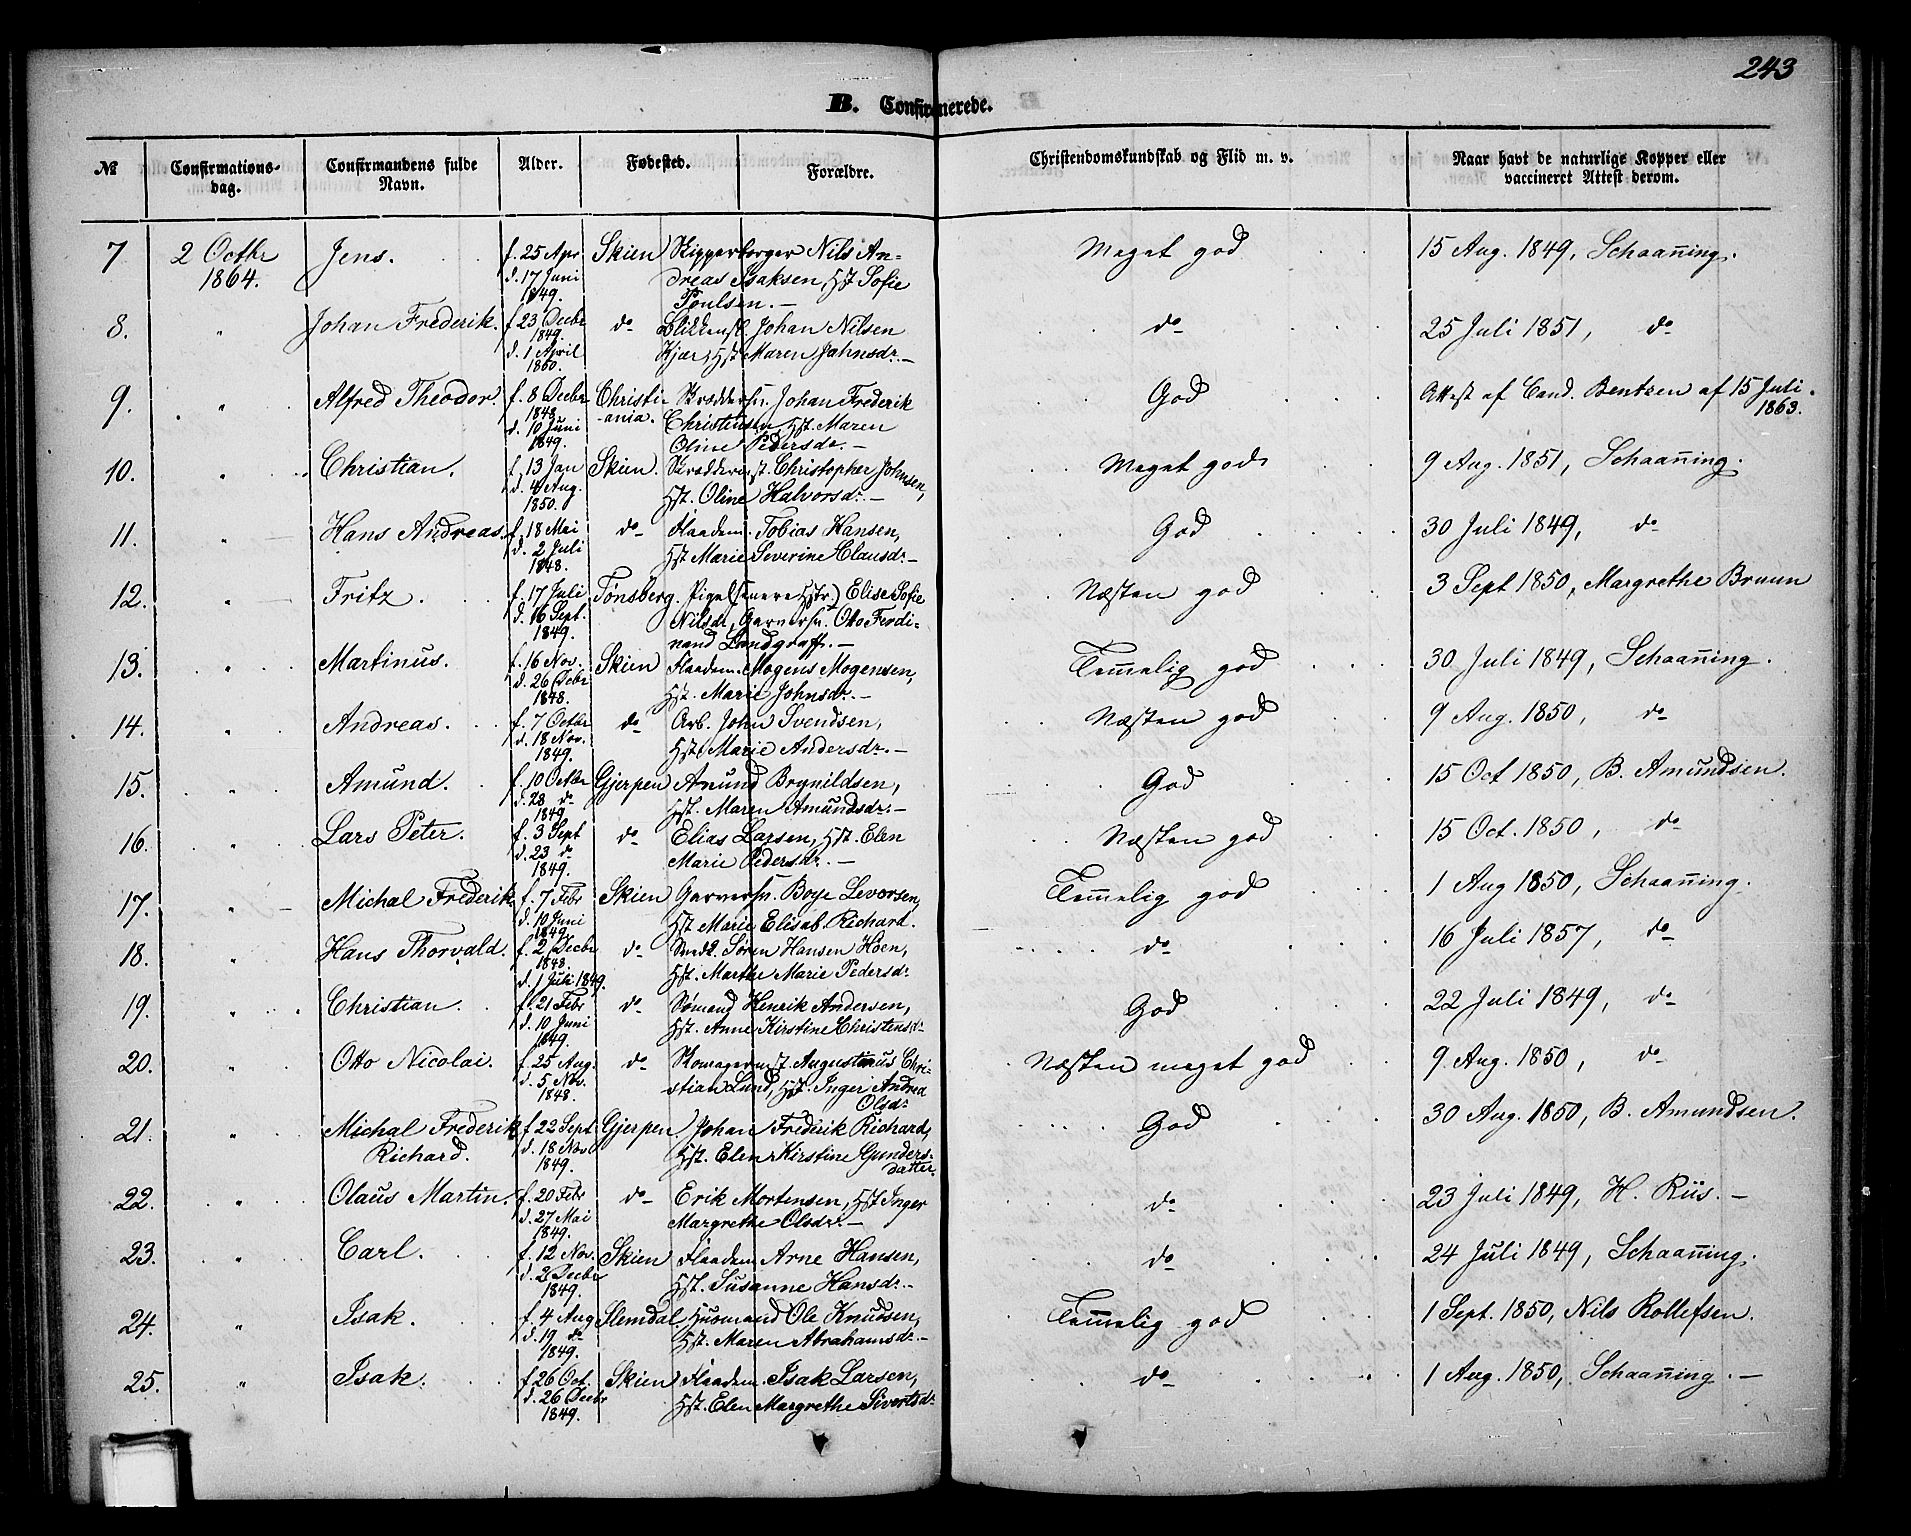 243
B. Confirmerede.
№ Confirmations-dag. Confirmandens fulde Navn. Alder. Fødested. Forældre. Christendomskundskab og Flid m. v. Naar havt de naturlige Kopper eller vaccineret Attest derom.
7 2 Octbr 1864. Jens. f. 25 Apr. d. 17 Juni 1849. Skien Skipperborger Nils Andreas Isaksen, Hst Sofie Poulsen.— Meget god 15 Aug. 1849, Schaan̄ing.
8. " Johan Frederik. f. 23 Decbr 1849. d. 1 April 1850. do Blikkensl. Johan Nilsen Kjær, Hst Maren Jahnsdr.— do 25 Juli 1851, do
9. " Alfred Theodor. f. 8 Decbr 1848. d. 10 Juni 1849. Christi-ania. Skræddersv. Johan Frederik Christensen, Hst. Maren Oline Pedersdr.— God Attest af Cand. Bentzen af 15 Juli 1863.
10. " Christian. f. 13 Jan d. 4 Aug. 1850. Skien. Skrædderm st. Christopher Johnsen, Hst. Oline Halvorsdr.— Meget god 9 Aug. 1851, Schaan̄ing.
11. " Hans Andreas. f. 18 Mai d. 2 Juli 1848. do Flaadem. Tobias Hansen, Hst Marie Severine Clausdr.— God 30 Juli 1849, do
12. " Fritz. f. 17 Juli d. 16 Sept. 1849. Tønsberg. Pige (senere Hstr.) Elise Sofie Nilsdr, Garversv. Otto Ferdinand Landgraff.— Næsten god 3 Sept 1850, Margrethe Bruun
13. " Martinus. f. 16 Nov. d. 26 Decbr 1848. Skien Flaadem. Mogens Mogensen, Hst. Marie Johnsdr.— Tem̄elig god 30 Juli 1849, Schaan̄ing.
14. " Andreas. f. 7 Octbr d. 18 Nov. 1849. do Arb. John Svendsen, Hst. Marie Andersdr.— Næsten god 9 Aug. 1850, do
15. " Amund. f. 10 Octbr d. 28 do 1849 Gjerpen Amund Brynildsen, Hst. Maren Amundsdr.— God 15 Oct 1850, B. Amundsen.
16. " Lars Peter. f. 3 Sept d. 23 do 1849. do Elias Larsen, Hst. Elen Marie Pedersdr.— Næsten god 15 Oct. 1850, do
17. " Michal Frederik f. 7 Febr d. 10 Juni 1849. Skien Garversv. Boye Levorsen, Hst Marie Elisab. Richard. Tem̄elig god 1 Aug 1850, Schaan̄ing.
18. " Hans Thorvald. f. 2 Decbr 1848. d. 1 Juli 1849. do Søren Hansen Hoen, Hst. Marthe Marie Pedersdr. do 16 Juli 1857, do
19. " Christian. f. 21 Febr d. 10 Juni 1849. do Sømand Henrik Andersen, Hst. Anne Kirstine Christensdr God 22 Juli 1849, do
20. " Otto Nicolai. f. 25 Aug. d. 5 Nov. 1848. do Skomagerm st. Augustinus Christian Lund, Hst. Inger Andrea Olsdr. Næsten meget god 9 Aug. 1850, do
21. " Michal Frederik Richard. f 22 Sept d. 18 Nov 1849. Gjerpen. Johan Frederik Richard, Hst. Elen Kirstine Gundersdatter. God 30 Aug. 1850, B. Amundsen.
22. " Olaus Martin. f. 20 Febr d. 27 Mai 1849. do Erik Mortensen, Hst Inger Margrethe Olsdr.— do 23 Juli 1849, H. Riis.—
23. " Carl. f. 12 Nov. d. 2 Decbr 1849. Skien Flaadem Arne Hansen, Hst. Susanne Hansdr.— do 24 Juli 1849, Schaan̄ing.
24. " Isak. f. 4 Aug d. 19 do 1849. Slemdal. Husmand Ole Knudsen, Hst. Maren Abrahamsdr.— Tem̄elig god 1 Sept. 1850, Nils Rollefsen.
25. " Isak. f 26 Oct. d. 26 Decbr 1849. Skien Flaadem. Isak Larsen, Hst. Elen Margrethe Sivertsdr. do 1 Aug. 1850, Schaan̄ing.—